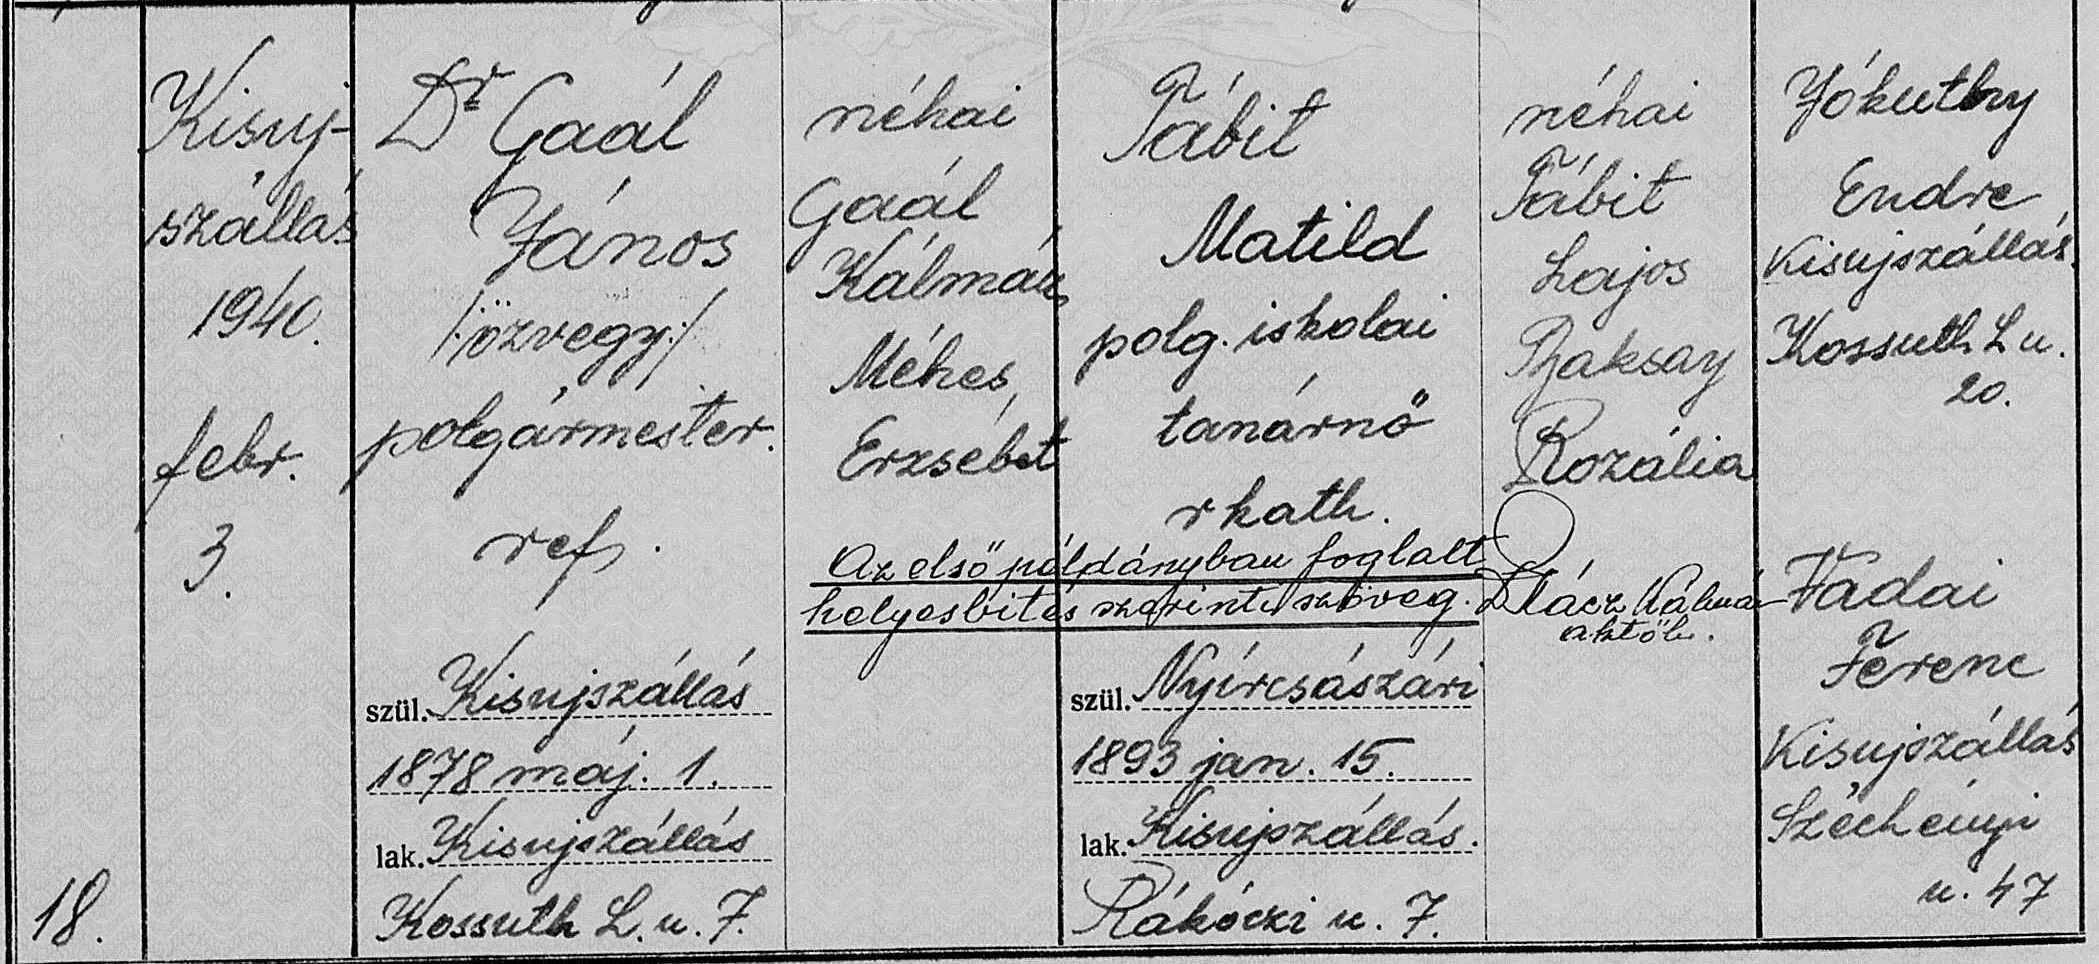 18.
Kisuj-
szállás
1940.
febr.
3.
Dr Gaál
János
/:özvegy:/
polgármester.
ref.
szül. Kisujszállás
1878 máj. 1.
lak. Kisujszállás
Kossuth L. u. 7.
néhai
Gaál
Kálmán,
Méhes
Erzsébet
Tábit
Matild
polg. iskolai
tanárnő
rkath.
Az első példányban foglalt
helyesbités szerinti szöveg.
szül. Nyírcsászári
1893 jan. 15.
lak. Kisujszállás.
Rákóczi u. 7.
néhai
Tábit
Lajos
Baksay
Rozália
Kálmán
Jókuthy
Endre
Kisujszállás.
Kossuth L u.
20.
Vadai
Ferenc
Kisujszállás
Széchenyi
u. 47